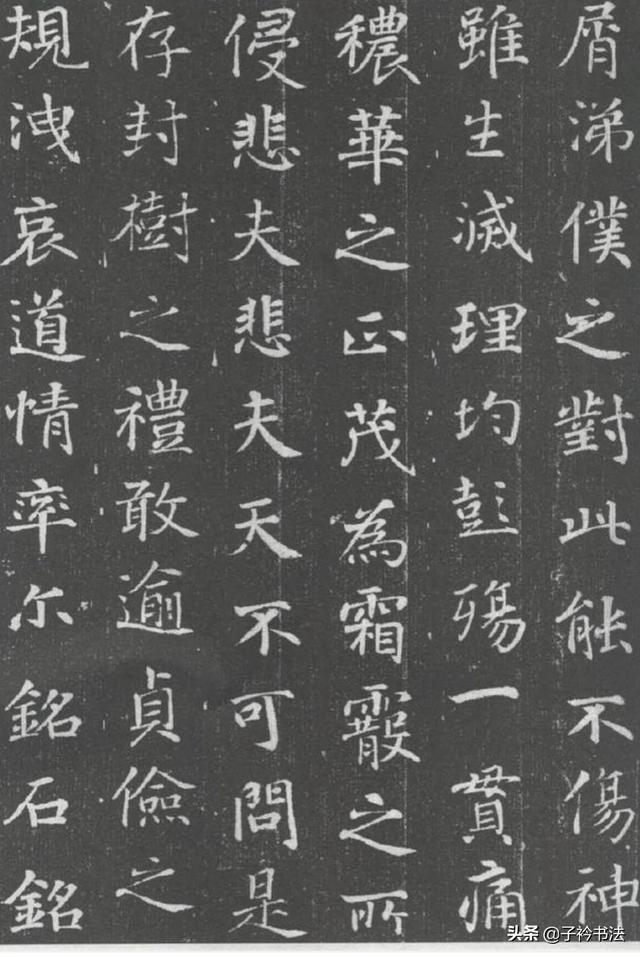 屑涕僕之對此能不傷神
雖生滅理均彭殤一貫痛
穠華之正茂為霜霰之所
侵悲夫悲夫天不可問是
存封樹之禮敢逾貞儉之
規洩哀道情率尔銘石銘
头条 @子衿书法